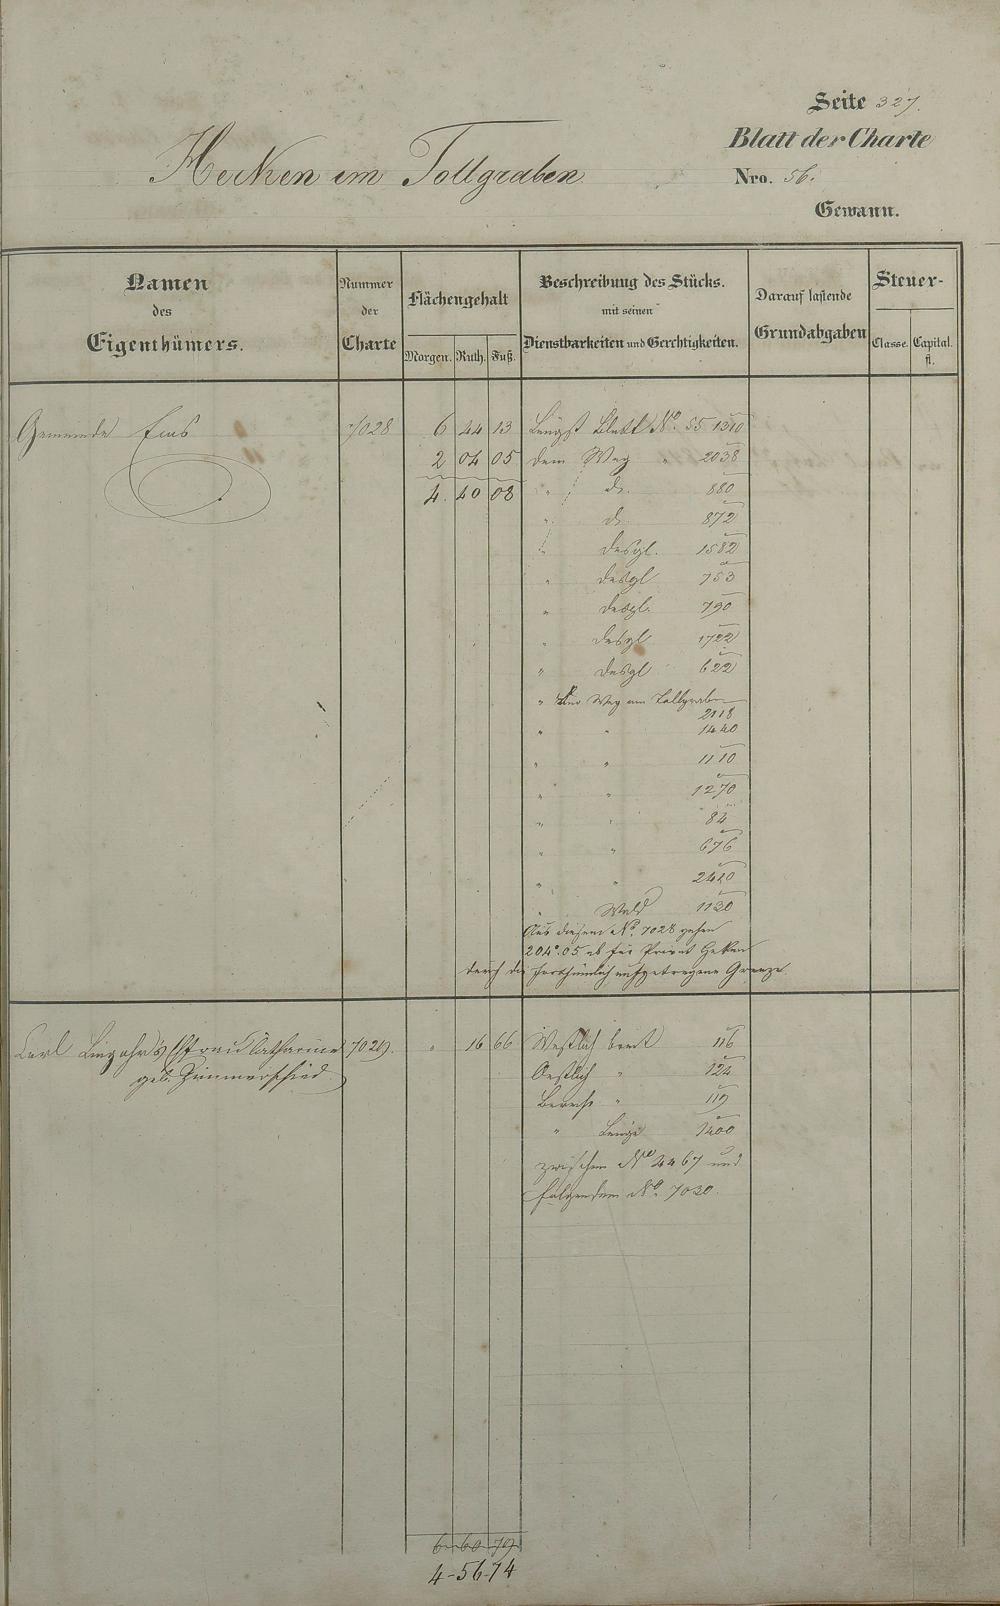 Seite 327.
Blatt der Charte
Hecken im Tollgraben
Nro. 56.
Gewann.
Namen des Eigenthümers.
Nummer der Charte
Flächengehalt
Morgen. Ruth. Fuß.
Beschreibung des Stücks. mit seinen Dienstbarkeiten und Gerechtigkeiten.
Darauf lastende Grundabgaben
Steuer-
Classe. Capital. fl.
Gemeinde Ems 7028 6 44 13 Längst Blatt No. 55 1310
2 04 05 dem Weg " 2038
4. 40 08 " " do. 880
" do. 872
" desgl. 1582
" desgl 753
" desgl. 790
" desgl 1722
" desgl 622
" Weg am Tollgraben
2118
" " 1440
" " 1110
" " 1270
" " 84
" " 676
" " 2420
" Wald 1130
Aus diesem No. 7028 gehen
204°.05 ab für Privat Hecken
durch die aufgetragene Grenze.
Carl Linzohr's Ehefrau Catharine 7029. " 16 66 Westlich breit 116
geb. Zimmerschied
Oestlich " 122
" 119
" Länge 1400
zwischen No 4467 und
folgendem No. 7030.
6-60-79
4-56-74